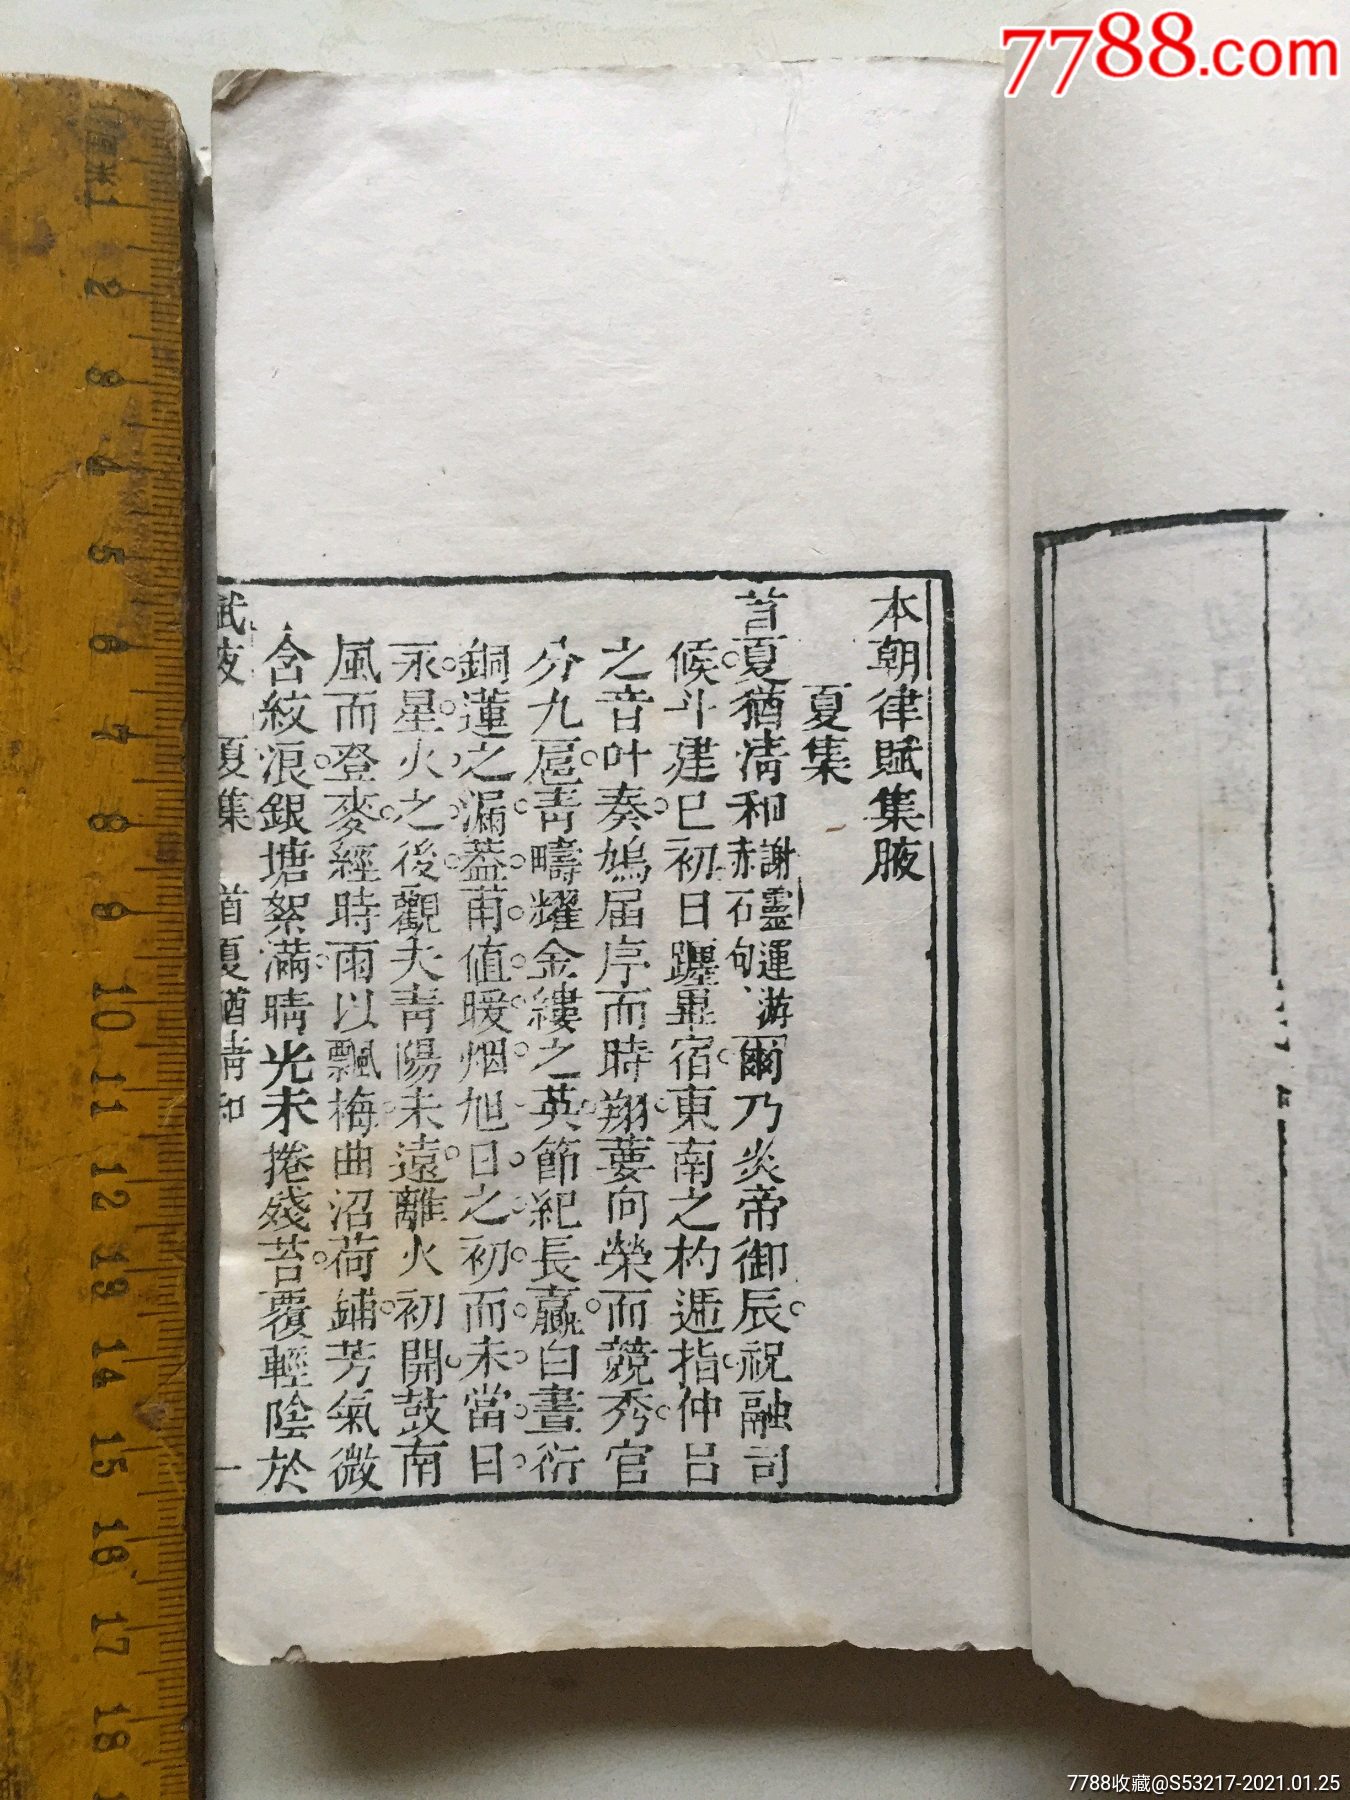 7788.com
本朝律賦集腋
夏集
首夏猶淸和謝靈運游赤石句爾乃炎帝御辰祝融司
候斗建巳初日躔畢宿東南之杓遞指仲呂
之音叶奏鳩届序而時翔葽向榮而競秀官
分九扈靑疇耀金縷之英節紀長嬴白晝衍
銅蓮之漏葢莆值暖烟旭日之初而未當日
永星火之後觀夫靑陽未遠離火初開鼓南
風而登麥經時雨以飄梅曲沼荷鋪芳氣微
含紋浪銀塘絮滿晴光未捲殘苔覆輕陰於
賦腋 夏集 首夏猶淸和 一
1厘米
2
3
4
5
6
7
8
9
10
11
12
13
14
15
16
17
18
7788收藏@S53217-2021.01.25